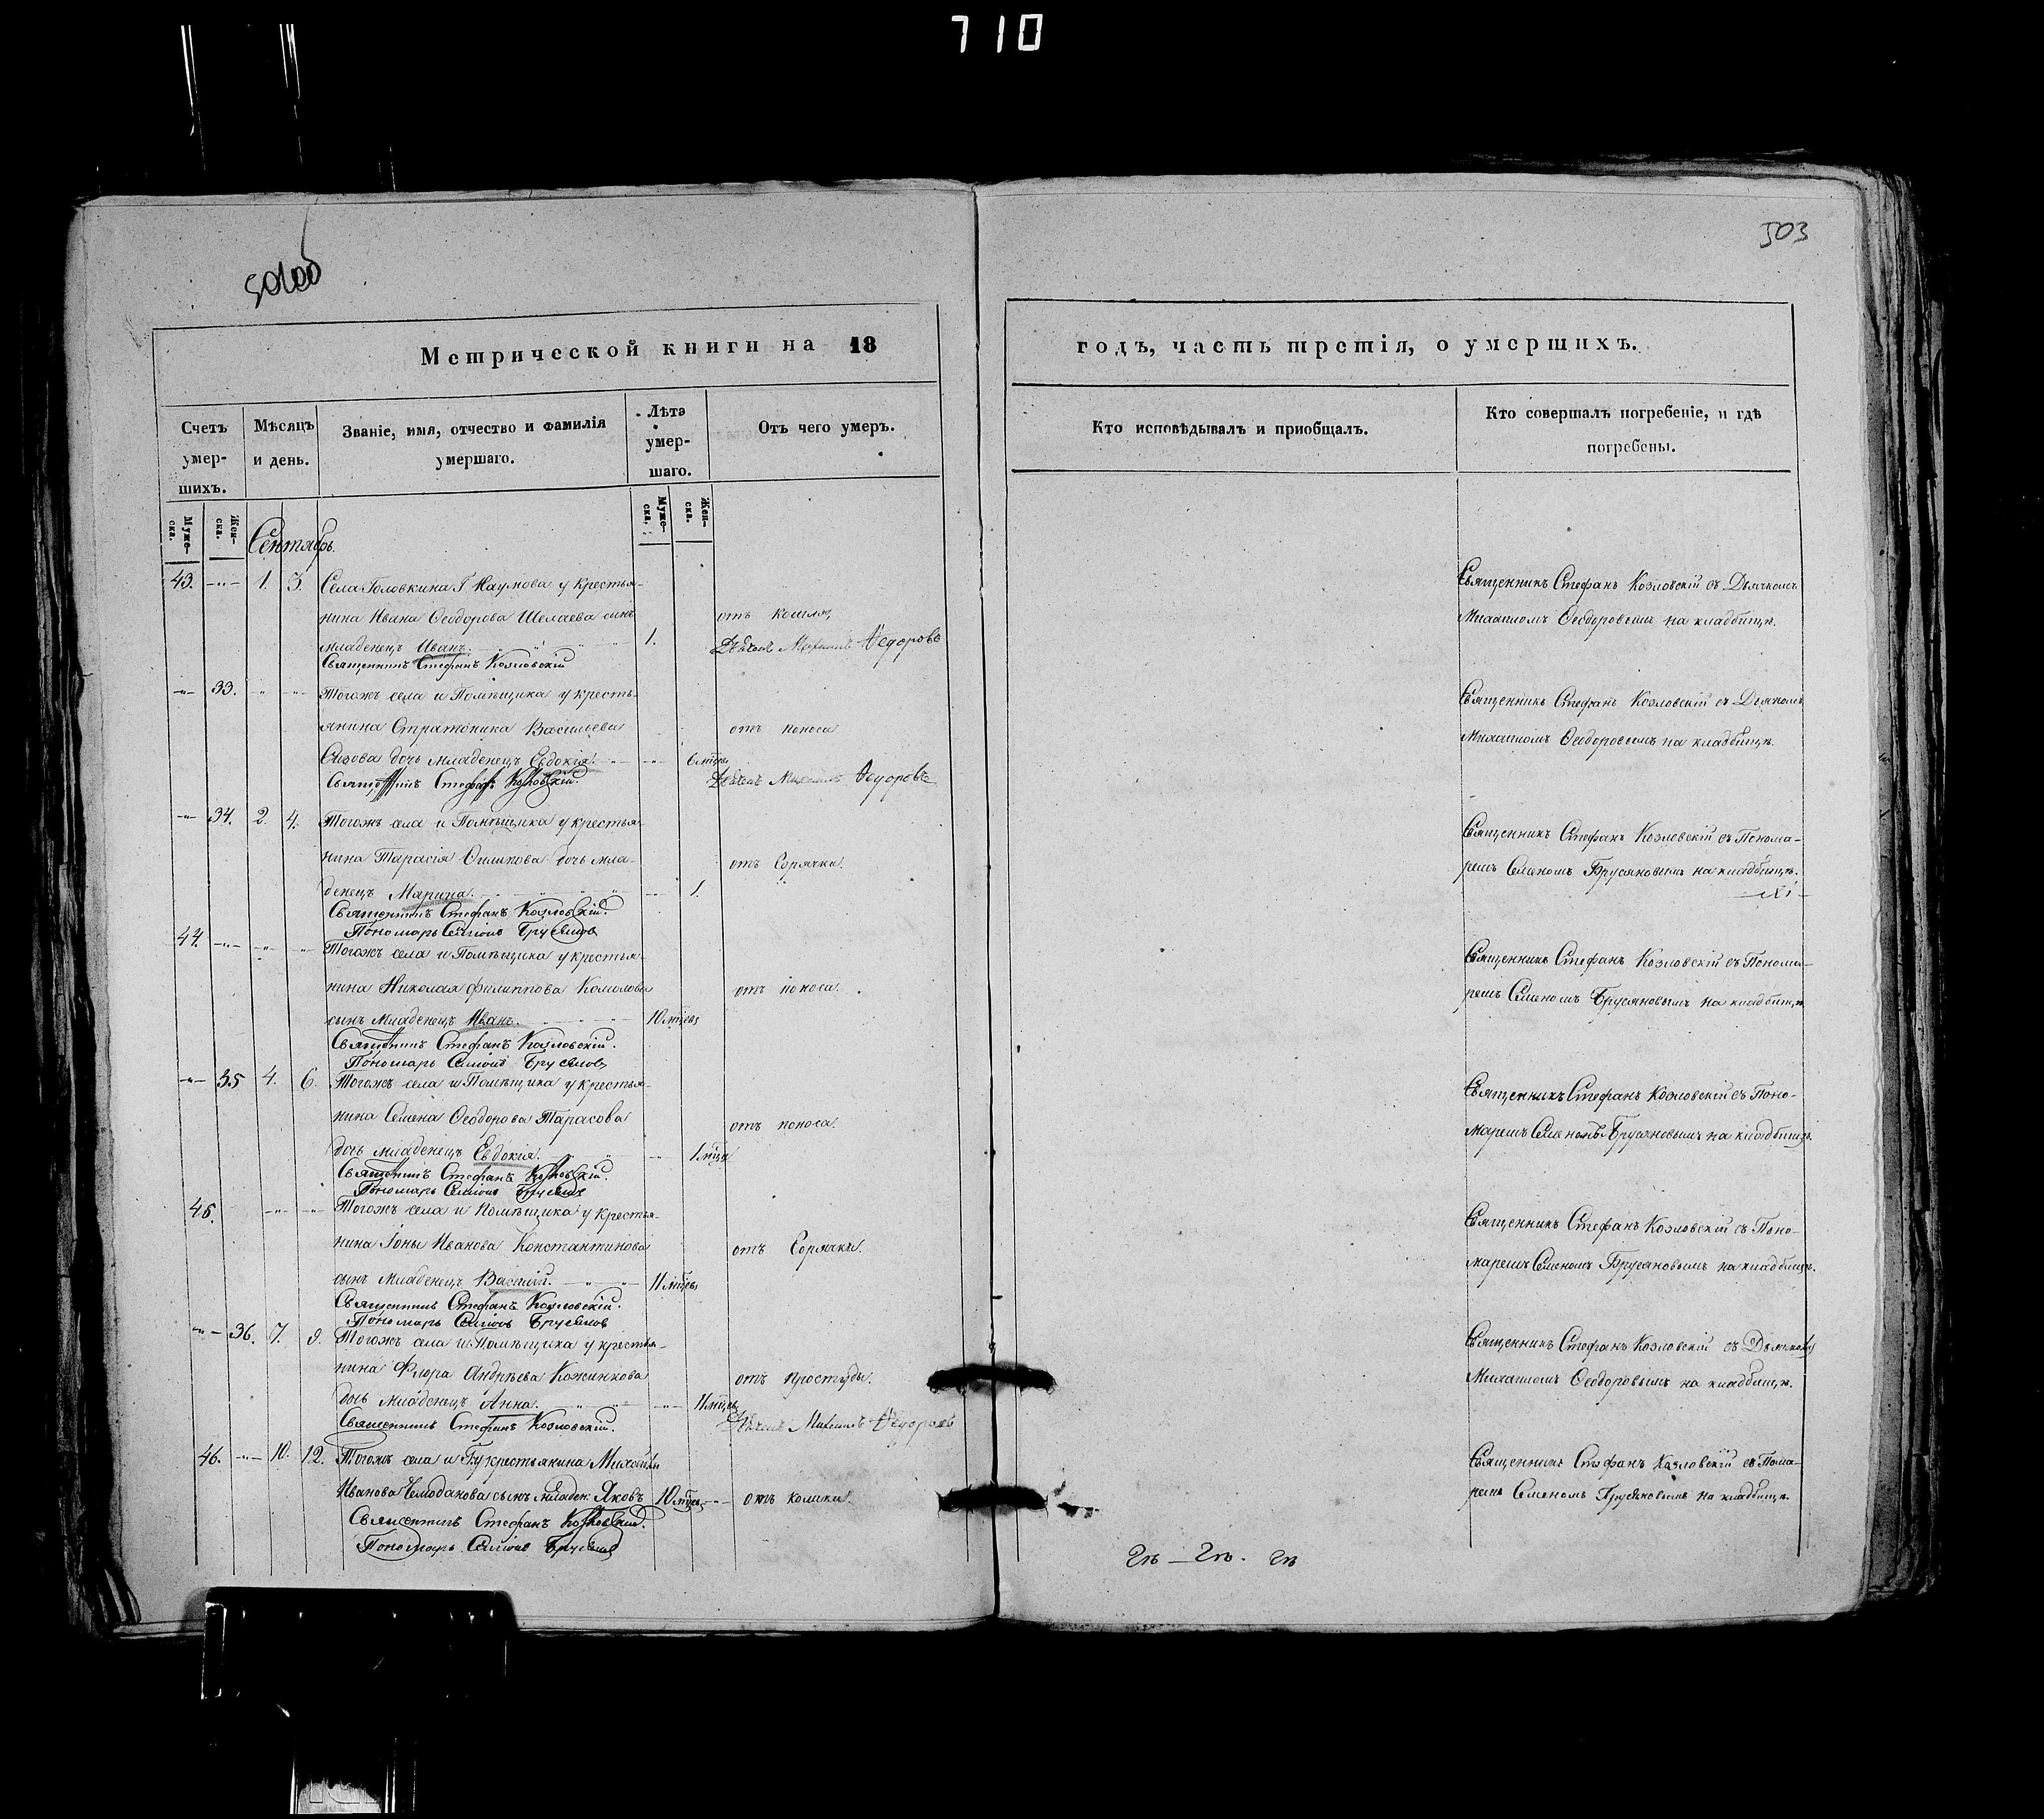 710
503
Метрической книги на 18
годъ, часть третія, о умершихъ.
Счетъ умер-шихъ.
Мѣсяцъ и день.
Званіе, имя, отчество и фамилія умершаго.
Лѣта умер-шаго.
Отъ чего умеръ.
Кто исповѣдывалъ и приобщалъ.
Кто совершалъ погребеніе, и гдѣ погребены.
Муже-ска.
Жен-ска.
Муже-ска.
Жен-ска.
Сентябрь.
43. 1. 3. Села Головкина Г. Наумова у крестья-
нина Ивана Ѳеодорова Шелаева сынъ отъ кашля,
младенецъ Иванъ. 1. Дьячекъ Михаилъ Федоровъ
Священникъ Стефанъ Козловскій
Священникъ Стефанъ Козловскій съ Дьячкомъ
Михаиломъ Ѳеодоровымъ на кладбищѣ.
33. Тогожъ села и Помѣщика у кресть-
янина Стратоника Васильева отъ поноса
Сизова дочь младенецъ Евдокія. 6 мцъ.
Священникъ Стефанъ Козловскій. Дьячекъ Михаилъ Федоровъ
Священникъ Стефанъ Козловскій съ Дьячкомъ
Михаиломъ Ѳеодоровымъ на кладбищѣ.
34. 2. 4. Тогожъ села и Помѣщика у крестья-
нина Тарасія Филипова дочь мла- отъ Горячки.
денецъ Марина. 1.
Священникъ Стефанъ Козловскій.
Пономарь Симіонъ Брусянов
Священникъ Стефанъ Козловскій съ Понома-
ремъ Семеномъ Брусяновымъ на кладбищѣ.
44. Тогожъ села и Помѣщика у крестья-
нина Николая Филиппова отъ поноса.
сынъ младенецъ Иванъ. 10 мцевъ
Священникъ Стефанъ Козловскій.
Пономарь Симіонъ Брусянов
Священникъ Стефанъ Козловскій съ Понома-
ремъ Семеномъ Брусяновымъ на кладбищѣ
35 4. 6. Тогожъ села и Помѣщика у крестья-
нина Семена Ѳеодорова Тарасова отъ поноса.
дочь младенецъ Евдокія. 1 мцъ
Священникъ Стефанъ Козловскій.
Пономарь Симіонъ Брусянов
Священникъ Стефанъ Козловскій съ Поно-
маремъ Семеномъ Брусяновымъ на кладбищѣ.
45. Тогожъ села и Помѣщика у крестья-
нина Іоны Иванова Константинова отъ Горячки.
сынъ младенецъ Василій. 11 мцевъ
Священникъ Стефанъ Козловскій.
Пономарь Симіонъ Брусянов
Священникъ Стефанъ Козловскій съ Поно-
маремъ Семеномъ Брусяновымъ на кладбищѣ.
36. 7. 9. Тогожъ села и Помѣщика у крестья-
нина Флора Андрѣева Кожинкова отъ простуды.
дочь младенецъ Анна. 11 мцевъ
Священникъ Стефанъ Козловскій. Дьячекъ Михаилъ Федоровъ
Священникъ Стефанъ Козловскій съ Дьячкомъ
Михаиломъ Ѳеодоровымъ на кладбищѣ.
46. 10. 12. Тогожъ села и Г. у крестьянина Михайлы
Иванова Чемоданова сынъ младен: Яковъ 10 мцевъ отъ колики.
Священникъ Стефанъ Козловскій.
Пономарь Симіонъ Брусянов
Священникъ Стефанъ Козловскій съ Пома-
ремъ Семеномъ Брусяновымъ на кладбищѣ.